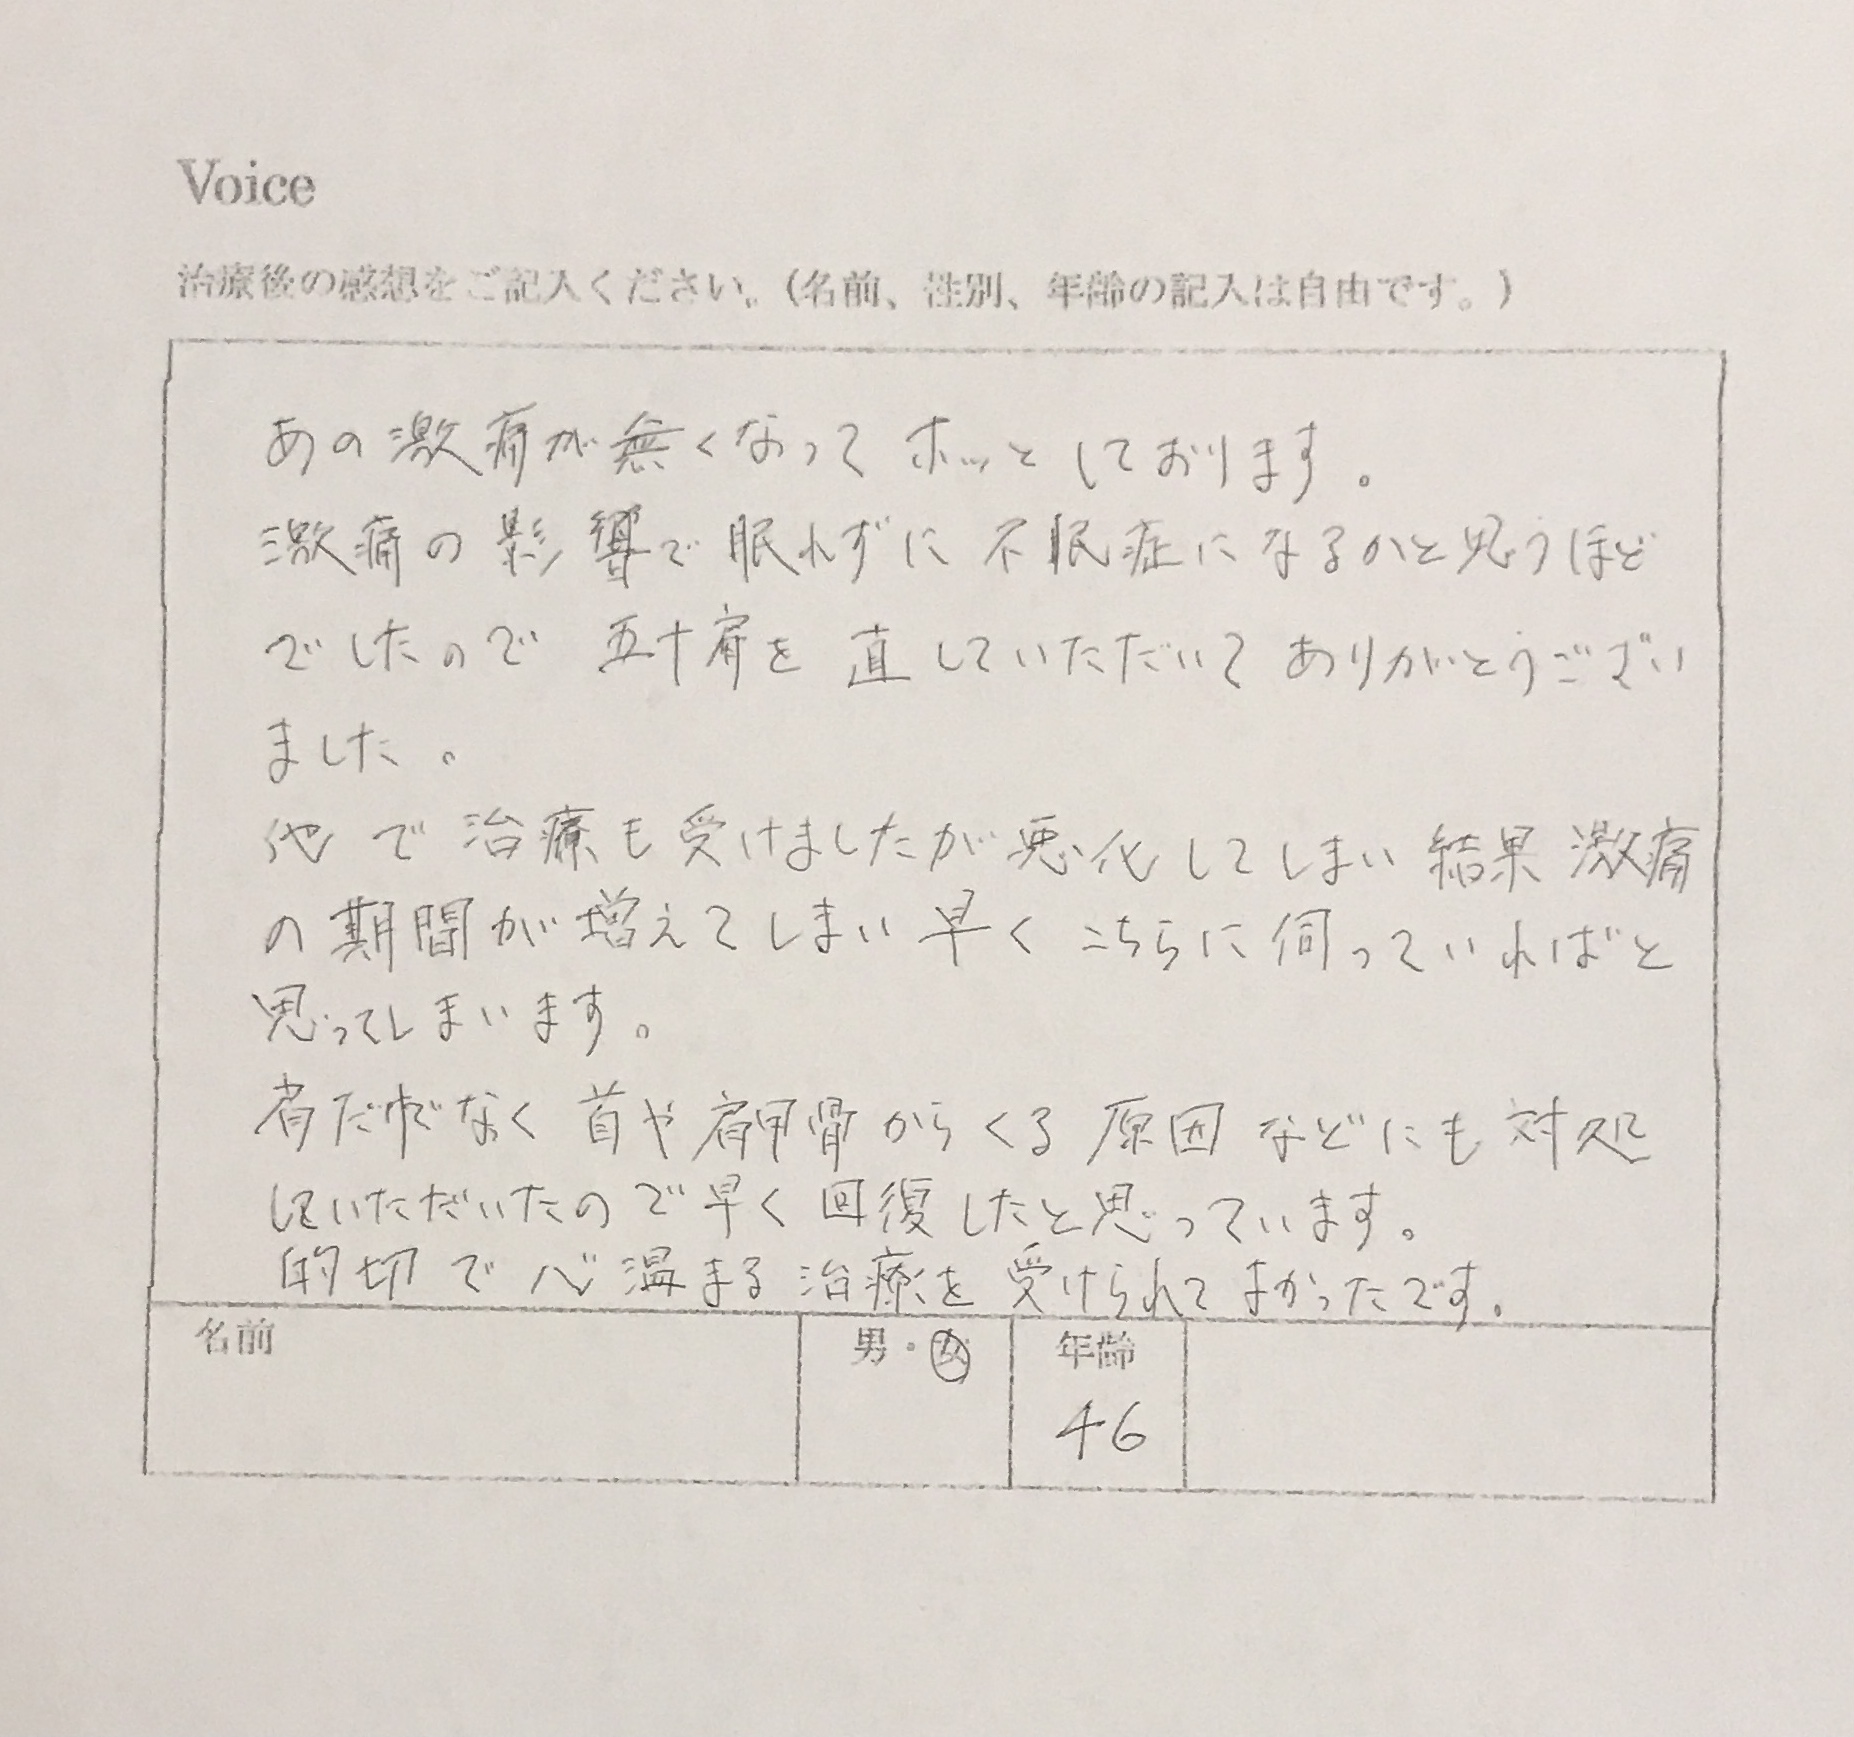 Voice
治療後の感想をご記入ください。(名前、性別、年齢の記入は自由です。)
あの激痛が無くなって ホッと しております。
激痛の影響で眠れずに 不眠症になるかと思うほど
でしたので 五十肩を 直していただいて ありがとうござい
ました。
他で治療も受けましたが悪化してしまい 結果 激痛
の期間が増えてしまい 早く こちらに伺っていればと
思ってしまいます。
肩だけでなく 首や肩甲骨からくる 原因などにも対処
していただいたので早く回復したと思っています。
的切で心温まる治療を受けられてよかったです。
名前 男・女 年齢
46